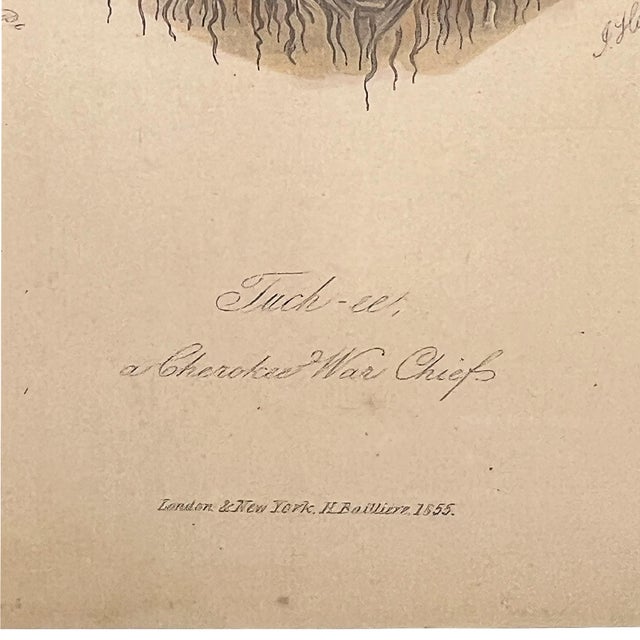 Tuch-ee,
a Cherokee War Chief
London & New York, H Bailliere, 1855.